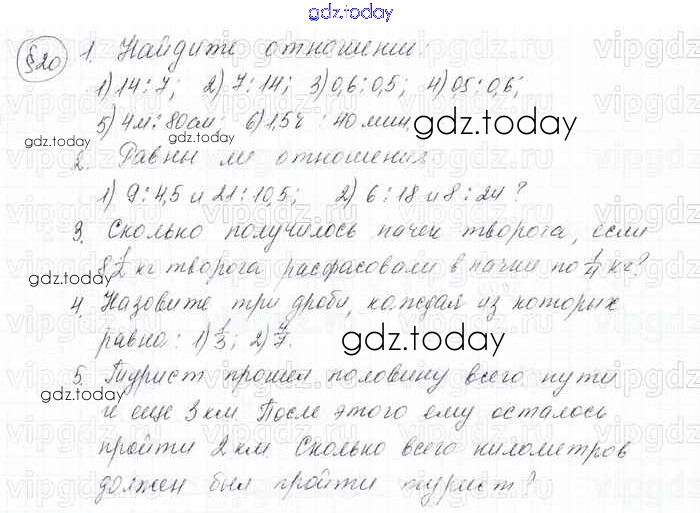 gdz.today
§20 1. Найдите отношения:
1) 14:7; 2) 7:14; 3) 0,6:0,5; 4) 0,5:0,6;
5) 4м:80см; 6) 1,5ч : 40 мин. gdz.today
gdz.today
2. Равны ли отношения:
1) 9:4,5 и 21:10,5; 2) 6:18 и 8:24?
3. Сколько получилось пачек творога, если
8 1/2 кг творога расфасовали в пачки по 1/4 кг?
gdz.today
4. Назовите три дроби, каждая из которых
равна: 1) 1/3; 2) 4/7. gdz.today
5. Турист прошел половину всего пути
и еще 3 км. После этого ему осталось
пройти 2 км. Сколько всего километров
должен был пройти турист?